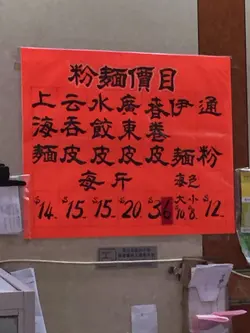 粉麵價目
上海麵
云吞皮
水餃皮
廣東皮
春卷皮
伊麵
通粉
每斤
每色
大 小
$14. $15. $15. $20. $36 $10. $8. $12.